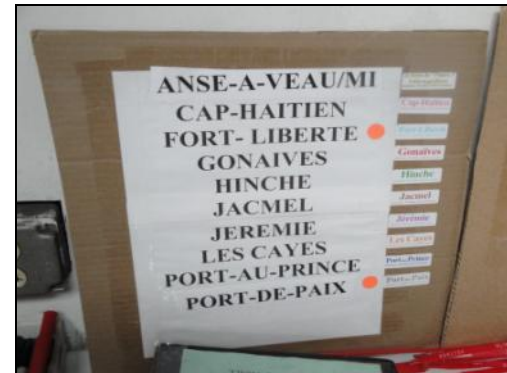 ANSE-A-VEAU/MI
CAP-HAITIEN
FORT- LIBERTE
GONAIVES
HINCHE
JACMEL
JEREMIE
LES CAYES
PORT-AU-PRINCE
PORT-DE-PAIX
Cap-Haïtien
Gonaïves
Hinche
Jacmel
Jérémie
Les Cayes
Port-au-Prince
Port-de-Paix